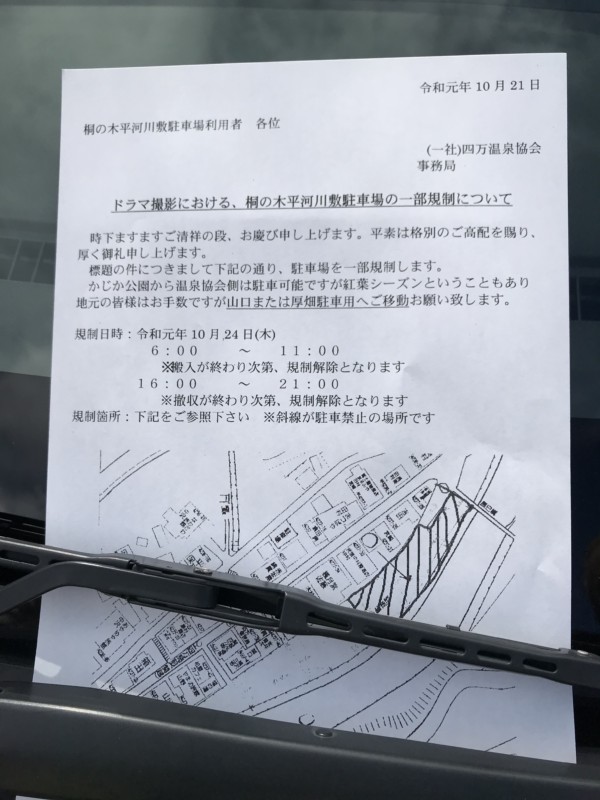 令和元年10月21日
桐の木平河川敷駐車場利用者　各位
(一社)四万温泉協会
事務局
ドラマ撮影における、桐の木平河川敷駐車場の一部規制について
時下ますますご清祥の段、お慶び申し上げます。平素は格別のご高配を賜り、
厚く御礼申し上げます。
標題の件につきまして下記の通り、駐車場を一部規制します。
かじか公園から温泉協会側は駐車可能ですが紅葉シーズンということもあり
地元の皆様はお手数ですが山口または厚畑駐車用へご移動お願い致します。
規制日時：令和元年10月24日(木)
６：００　～　１１：００
※搬入が終わり次第、規制解除となります
１６：００　～　２１：００
※撤収が終わり次第、規制解除となります
規制箇所：下記をご参照下さい　※斜線が駐車禁止の場所です